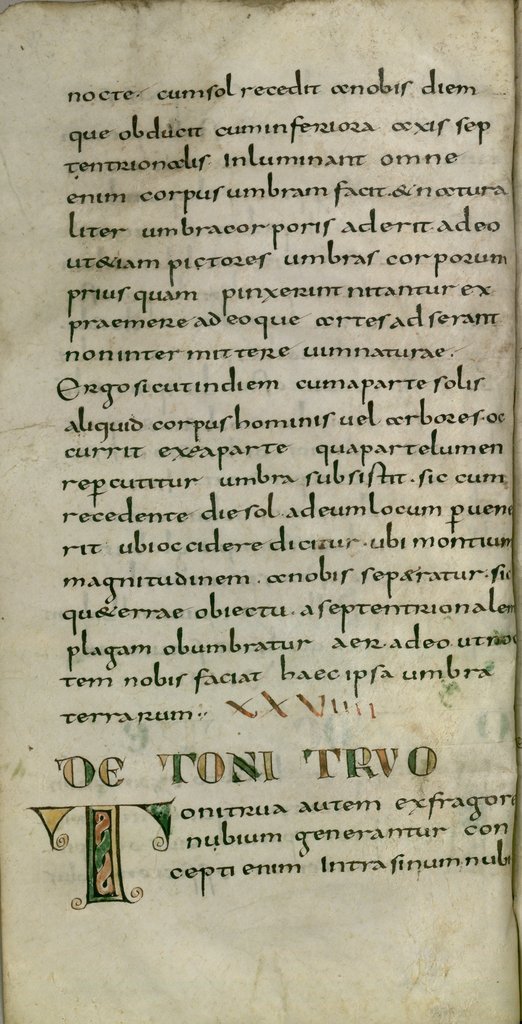 nocte. cum sol recedit a nobis diem
que obducit cum inferiora axis sep
tentrionalis inluminant omne
enim corpus umbram facit. & natura
liter umbra corporis aderit. adeo
ut&iam pictores umbras corporum
prius quam pinxerint nitantur ex
praemere adeoque artes adserant
non intermittere uim naturae.
Ergo sicut in diem cum aparte solis
aliquid corpus hominis uel arbores. oc
currit exea parte qua parte lumen
repercutitur umbra subsistit. sic cum
recedente die sol. ad eum locum peruene
rit ubi occidere dicitur. ubi montium
magnitudinem. a nobis separatur. sic
qu&errae obiectu. a septentrionalem
plagam obumbratur aer. adeo ut noc
tem nobis faciat haec ipsa umbra
terrarum. XXVIIII
DE TONITRUO
Tonitrua autem ex fragore
nubium generantur con
cepti enim intra sinum nubi